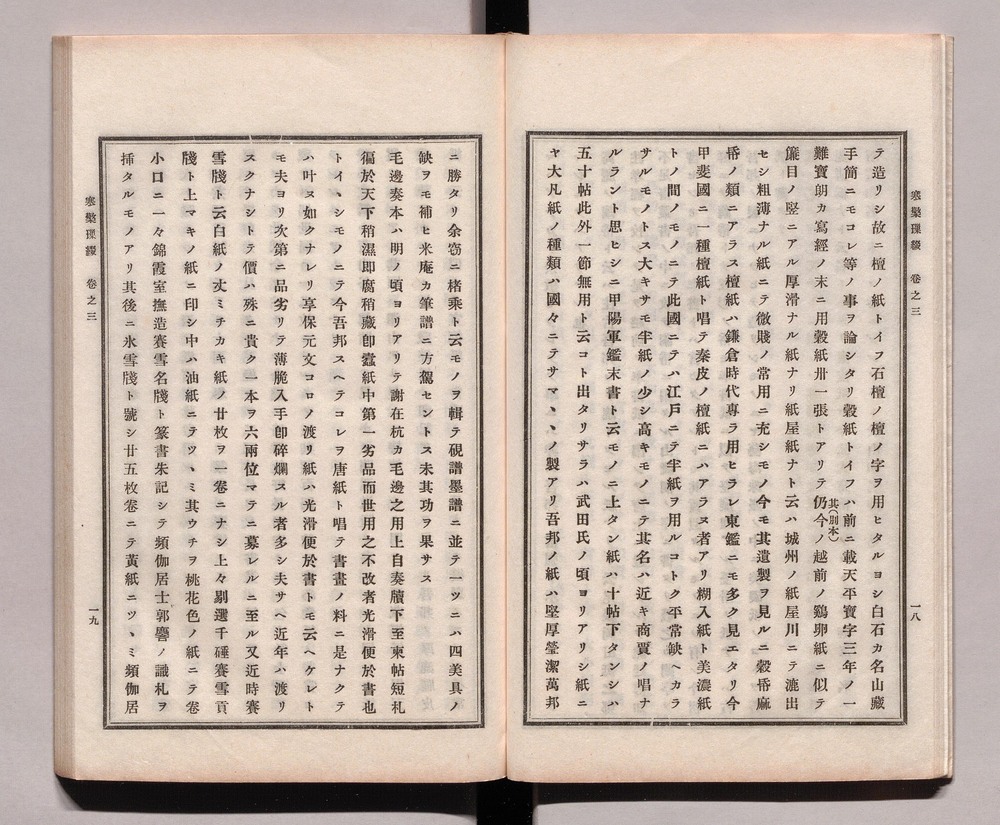 寒檠璅綴　卷之三
一八
テ造リシ故ニ檀ノ紙トイフ石檀ノ檀ノ字ヲ用ヒタルヨシ白石カ名山藏
手簡ニモコレ等ノ事ヲ論シタリ穀紙トイフハ前ニ載天平寶字三年ノ一
難寶朗カ寫經ノ末ニ用穀紙卅一張トアリテ仍今ノ越前ノ鷄卵紙ニ似テ
其(別本)
簾目ノ竪ニアル厚滑ナル紙ナリ紙屋紙ナト云ハ城州ノ紙屋川ニテ漉出
セシ粗薄ナル紙ニテ微賤ノ常用ニ充シモノ今モ其遺製ヲ見ルニ穀帋麻
帋ノ類ニアラス檀紙ハ鎌倉時代專ラ用ヒラレ東鑑ニモ多ク見エタリ今
甲斐國ニ一種檀紙ト唱テ秦皮ノ檀紙ニハアラヌ者アリ糊入紙ト美濃紙
トノ間ノモノニテ此國ニテハ江戶ニテ半紙ヲ用ルコトク平常缺ヘカラ
サルモノトス大キサモ半紙ノ少シ高キモノニテ其名ハ近キ商賈ノ唱ナ
ルラント思ヒシニ甲陽軍鑑末書ト云モノニ上タン紙ハ十帖下タンシハ
五十帖此外一節無用ト云コト出タリサラハ武田氏ノ頃ヨリアリシ紙ニ
ヤ大凡紙ノ種類ハ國々ニテサマ丶丶ノ製アリ吾邦ノ紙ハ堅厚瑩潔萬邦
ニ勝タリ余窃ニ楮乘ト云モノヲ輯テ硯譜墨譜ニ並テ一ツニハ四美具ノ
缺ヲモ補ヒ米庵カ筆譜ニ方駕セントス未其功ヲ果サス
毛邊奏本ハ明ノ頃ヨリアリテ謝在杭カ毛邊之用上自奏牘下至柬帖短札
徧於天下稍濕即腐稍藏卽蠧紙中第一劣品而世用之不改者光滑便於書也
トイヽシモノニテ今吾邦スヘテコレヲ唐紙ト唱テ書畫ノ料ニ是ナクテ
ハ叶ヌ如クナレリ享保元文コロノ渡リ紙ハ光滑便於書トモ云ヘケレト
モ夫ヨリ次第ニ品劣リテ薄脆入手卽碎爛スル者多シ夫サヘ近年ハ渡リ
スクナシトテ價ハ殊ニ貴ク一本ヲ六兩位マテニ募レルニ至ル又近時賽
雪牋ト云白紙ノ丈ミチカキ紙ノ廿枚ヲ一卷ニナシ上々剔選千硾賽雪貢
牋ト上マキノ紙ニ印シ中ハ油紙ニテツヽミ其ウチヲ桃花色ノ紙ニテ卷
小口ニ一々錦霞室撫造賽雪名牋ト篆書朱記シテ頻伽居士郭譽ノ識札ヲ
挿タルモノアリ其後ニ氷雪牋ト號シ廿五枚卷ニテ黃紙ニツヽミ頻伽居
寒檠璅綴　卷之三
一九